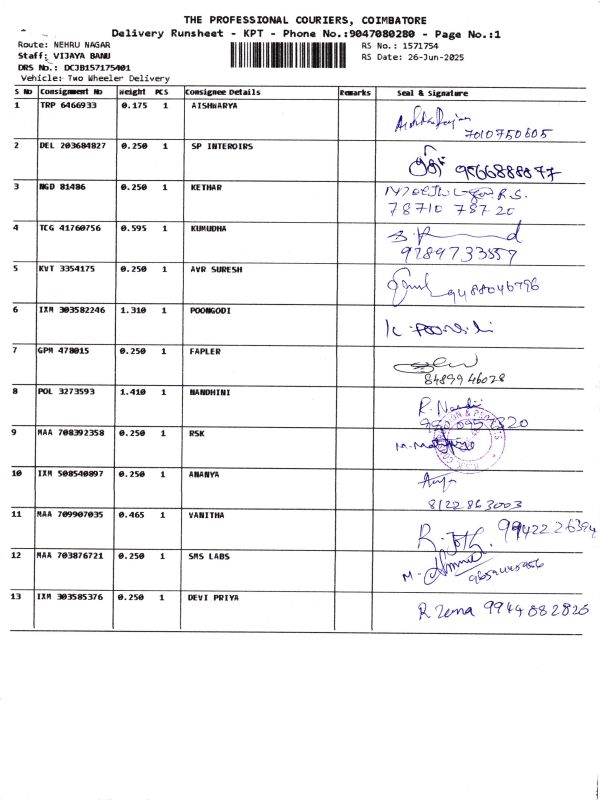 THE PROFESSIONAL COURIERS, COIMBATORE
Delivery Runsheet - KPT - Phone No.:9047080280 - Page No.:1
Route: NEHRU NAGAR
RS No.: 1571754
Staff: VIJAYA BANU
RS Date: 26-Jun-2025
DRS No.: DCJB157175401
Vehicle: Two Wheeler Delivery
S No Consignment No Weight PCS Consignee Details Remarks Seal & Signature
1 TRP 6466933 0.175 1 AISHWARYA
7010750605
2 DEL 203684827 0.250 1 SP INTEROIRS
9566888877
3 NGD 81486 0.250 1 KETHAR
78710 78720
4 TCG 41760756 0.595 1 KUMUDHA
9789733557
5 KVT 3354175 0.250 1 AVR SURESH
9488046796
6 IXM 303582246 1.310 1 POONGODI
7 GPM 478015 0.250 1 FAPLER
8489946028
8 POL 3273593 1.410 1 NANDHINI
R. Nandi
9 MAA 708392358 0.250 1 RSK
10 IXM 508540897 0.250 1 ANANYA
8122863003
11 MAA 709907035 0.465 1 VANITHA
9942226394
12 MAA 703876721 0.250 1 SMS LABS
13 IXM 303585376 0.250 1 DEVI PRIYA
9944882826